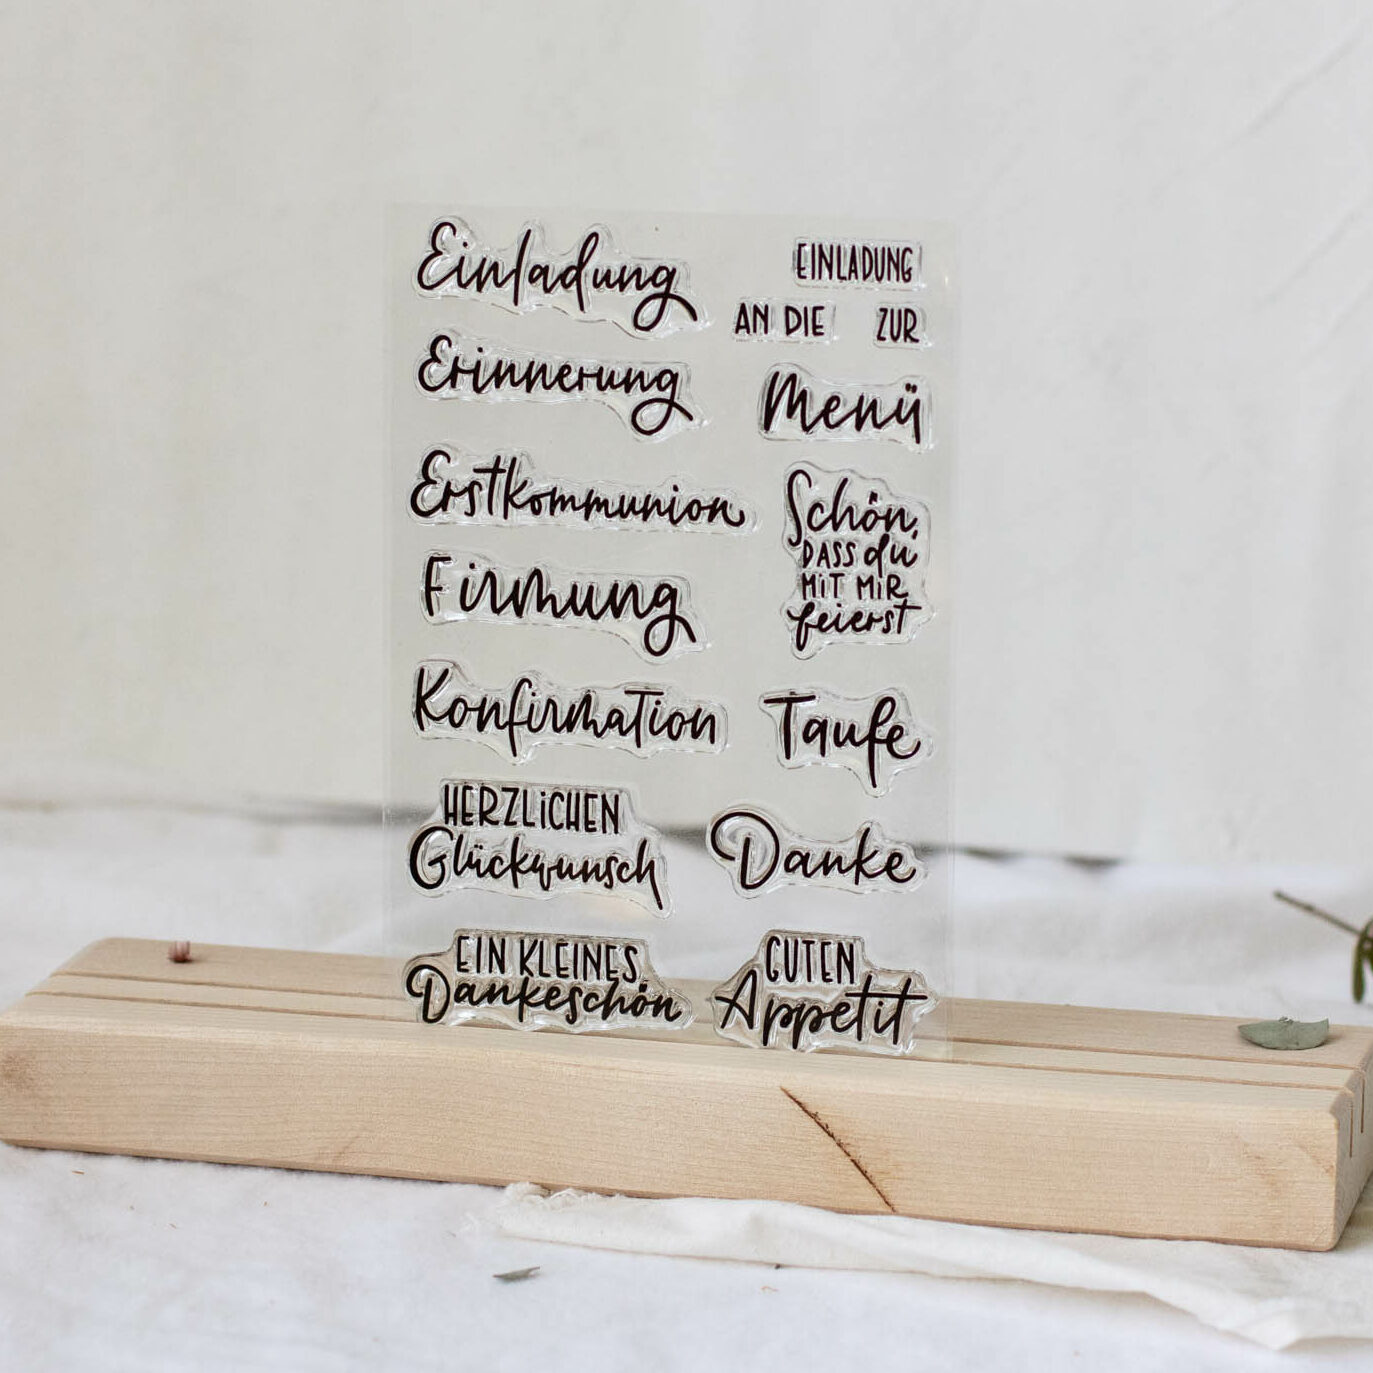 Einladung
EINLADUNG
AN DIE ZUR
Erinnerung
Menü
Erstkommunion
Schön,
DASS du
MiT MiR
feierst
Firmung
Konfirmation
Taufe
HERZLiCHEN
Glückwunsch
Danke
EIN KLEINES
Dankeschön
GUTEN
Appetit